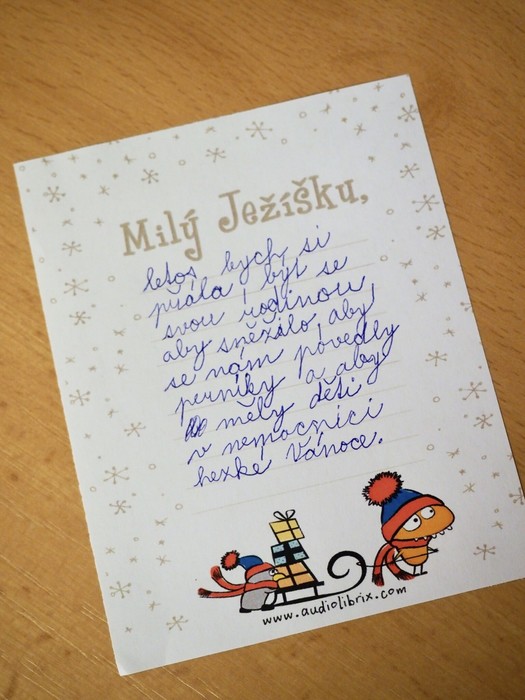 Milý Ježíšku,
letos bych si
přála být se
svou rodinou,
aby sněžilo, aby
se nám povedly
perníky a aby
měly děti
v nemocnici
hezké Vánoce.
www.audiolibrix.com